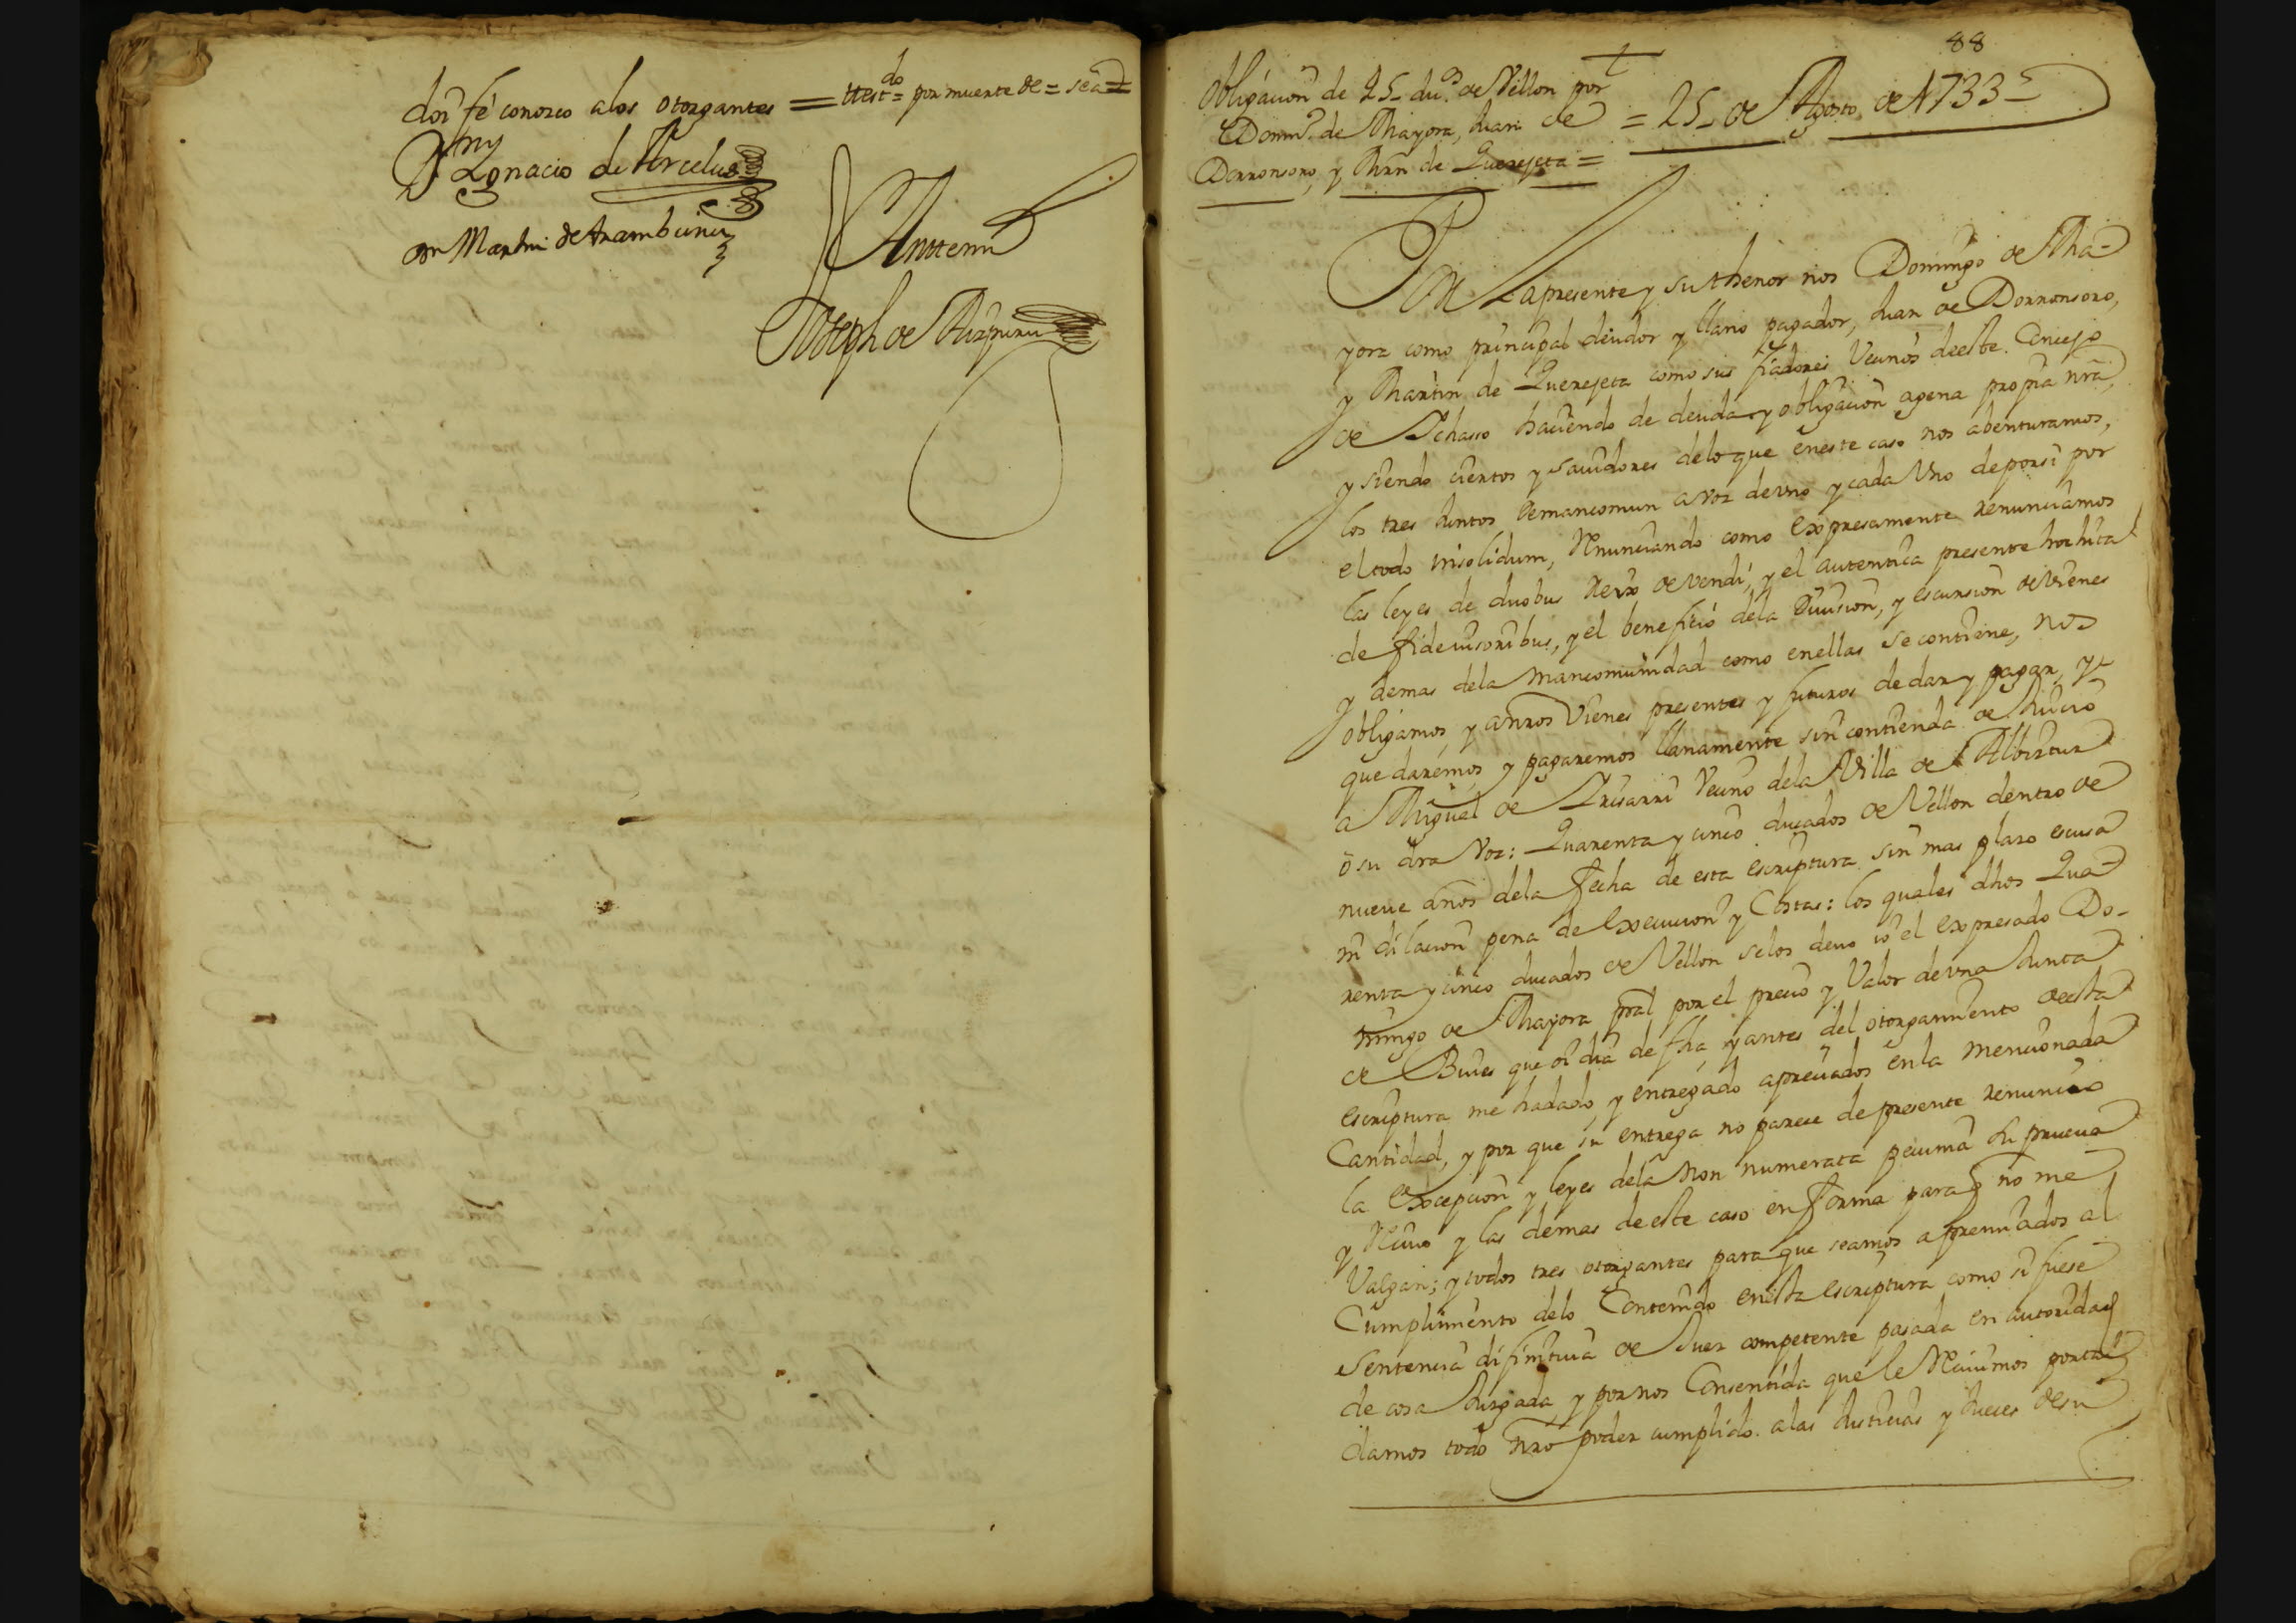 doi fé conozco a los otorgantes = ttestdo = por muerte de = sea =
Ignacio de Arcelus
Martin de Arambarri
Antemi
Joseph de Aizpuru
88
Obligacion de 25 - dus. de Vellon por
Domin. de Mayora, Juan de
Dorronsoro, y Mrn de Querejeta =
= 25 - de Agosto de 1733 -
Por la presente y su thenor nos Domingo de Ma-
yora como principal deudor y llano pagador, Juan de Dorronsoro,
y Martin de Querejeta como sus fiadores Vecinos de este Concejo
de haciendo de deuda y obligacion agena propia nra,
y siendo ciertos y savidores delo que en este caso nos abenturamos,
los tres Juntos demancomun a voz de vno y cada Vno depor si por
el todo insolidum, Renunciando como expresamente renunciamos
las leyes de duobus Rex devendi, y el autentica presente hochita
de fidevisoribus, y el beneficio dela Division, y escursion de vienes
y demas dela mancomunidad como en ellas se contiene, nos
obligamos, y a nros Vienes presentes y futuros de dar y pagar, y
que daremos, y pagaremos llanamente sin contienda de Juicio
a Miguel de Irisarri Vecino dela Villa de Albiztur
ó su dra voz: Quarenta y cinco ducados de Vellon dentro de
nueve años dela fecha de esta escriptura sin mas plazo escusa
ni dilacion pena de Execucion y Costas: los quales dhos Qua-
renta y cinco ducados de Vellon selos devo io el expresado Do-
mingo de Mayora pral por el precio y Valor de vna Junta
de Bueies que oi dia de fha y antes del otorgamiento de esta
escriptura me ha dado, y entregado apreciados en la mencionada
Cantidad, y por que su entrega no parece de presente renuncio
la Excepcion y leyes dela Non numerata pecunia su prueva
y Recivo y las demas de este caso en forma para q no me
Valgan; y todos tres otorgantes para que seamos apremiados al
Cumplimiento delo Contenido en esta escriptura como si fuese
Sentencia difinitiva de Juez competente pasada en autoridad
de cosa Juzgada y por nos Consentida que le Recivimos por tal
damos todo nro poder cumplido a las Justicias y Jueces de su